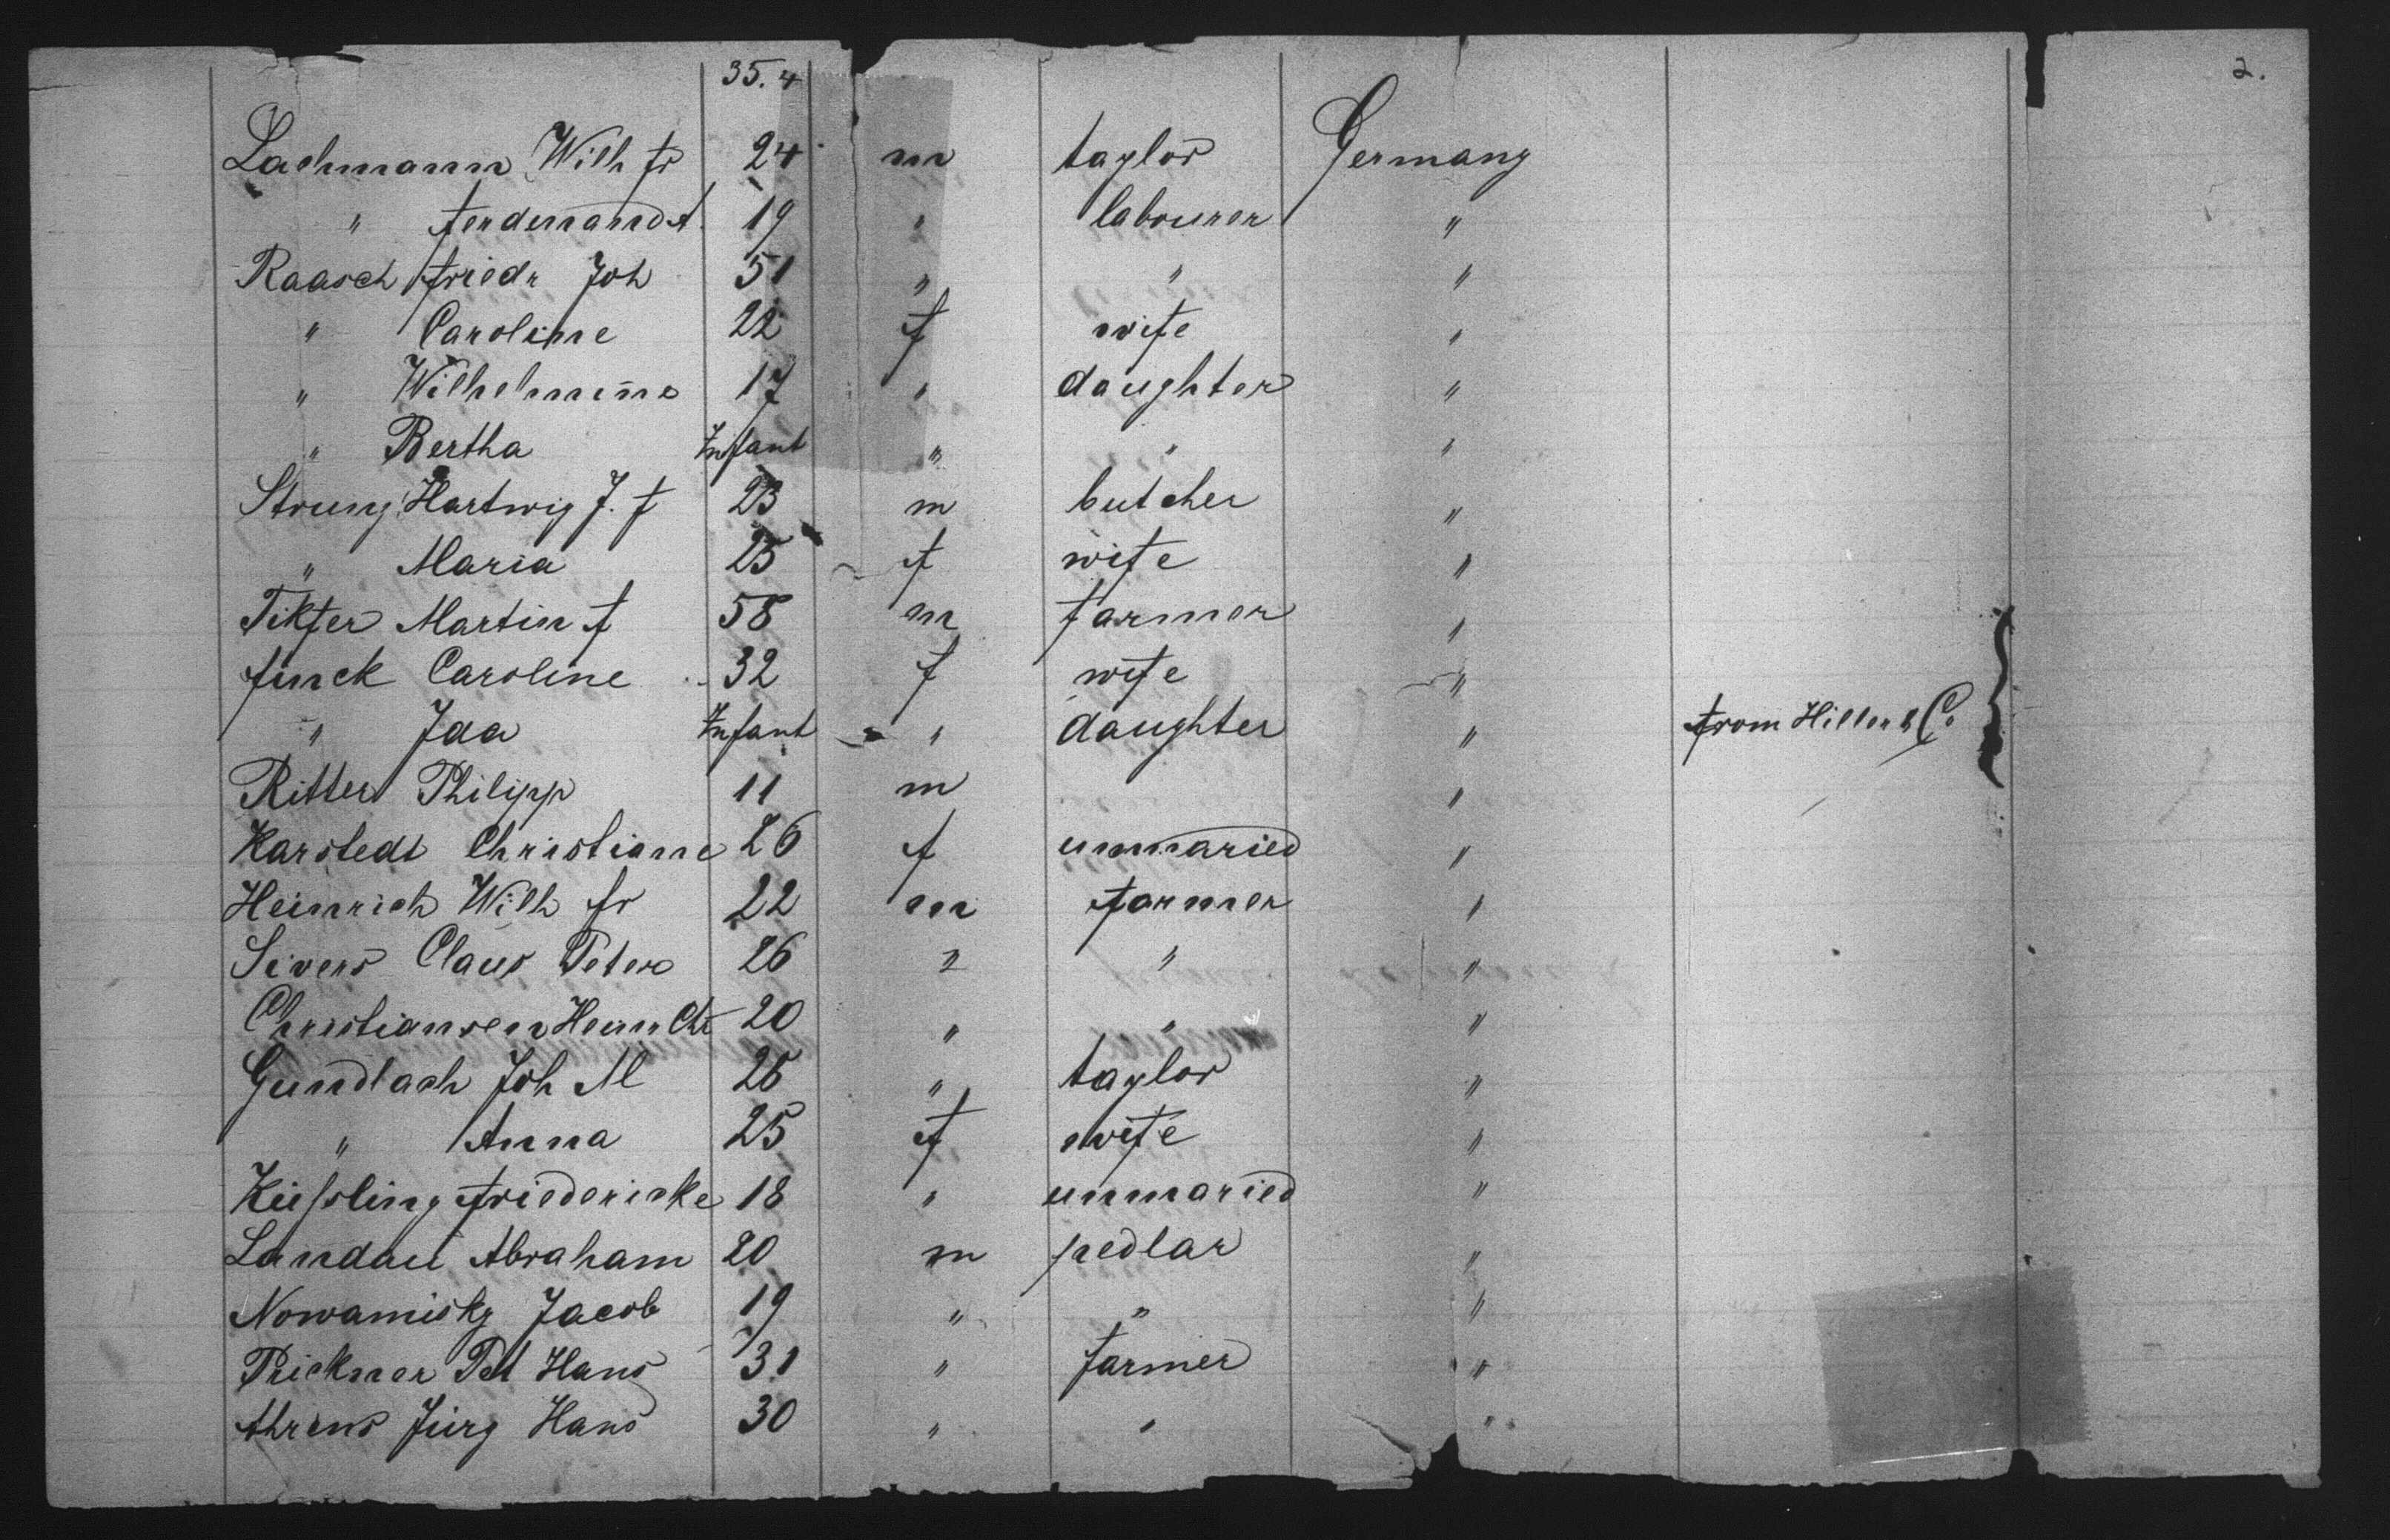 35. 4 2.
Lachmann Wilh fr 24 m taylor Germany
" ferdemand A 19 " labourer "
Raasch friedr Joh 51 " " "
" Caroline 22 f wife "
" Wilhelmine 17 " daughter "
" Bertha Infant " " "
Strung Hartwig J. f 23 m butcher "
" Maria 25 f wife "
Tikfer Martin f 58 m farmer "
finck Caroline 32 f wife "
" Ida Infant " daughter " from Hiller & Co
Ritter Philipp 11 m "
Karstedt Christiane 26 f unmaried "
Heinrich Wilh fr 22 m farmer "
Sivers Claus Peter 26 " " "
Christiansen Heinr Chr 20 " " "
Gundlach Joh M 26 " taylor "
" Anna 25 f wife "
Kießling friedericke 18 " unmaried "
Landau Abraham 20 m pedlar "
Nowamisky Jacob 19 " " "
Prickner Pet Hans 31 " farmer "
Ahrens Jürg Hans 30 " " "